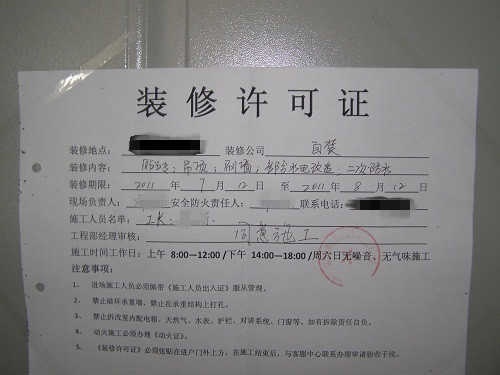 装修许可证
装修地点: 装修公司 自装
装修内容: 吊顶,刷墙,部分水电改造,二次防水
装修期限: 2011 年 7 月 12 日 至 2011 年 8 月 12 日
现场负责人: 安全防火责任人: 联系电话:
施工人员名单:
工程部经理审核: 同意施工
施工时间工作日: 上午 8:00—12:00 /下午 14:00—18:00 /周六日无噪音、无气味施工
注意事项:
1. 进场施工人员必须佩带《施工人员出入证》服从管理。
2. 禁止破坏承重墙,禁止在承重结构上打孔。
3. 禁止拆改室内配电箱、天然气、水表、护栏、对讲系统、门窗等,如有拆除责任自负。
4. 动火施工必须办理《动火证》。
5. 《装修许可证》必须张贴在进户门外上方,在施工结束后,与客服中心联系办理申请验收手续。